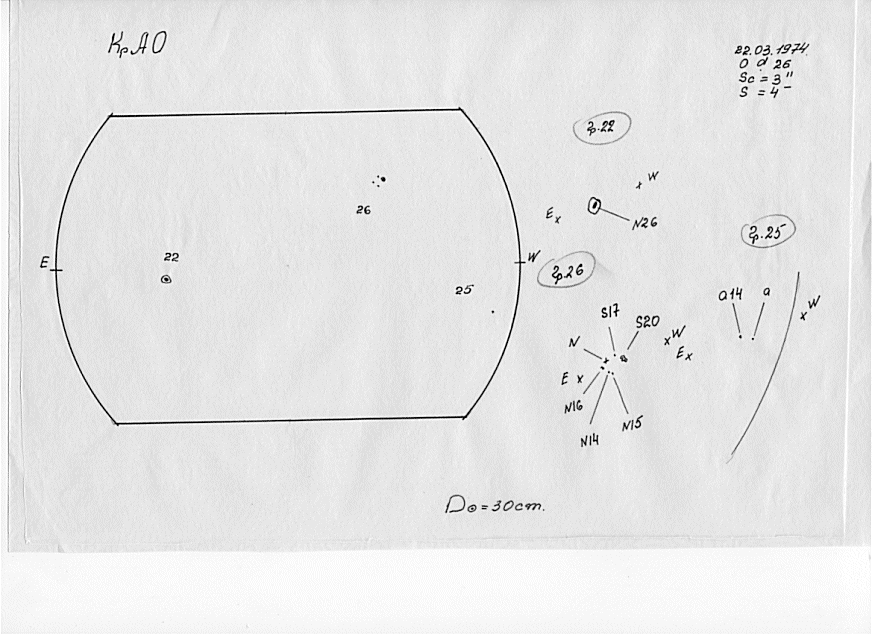 КрАО
22.03.1974
Sc = 3"
S = 4
гр.22
W
E
N26
26
22
E
W
25
гр.26
гр.25
S17
S20
W
E
N
E
N16
N14
N15
a14
a
W
D⊙=30cm.